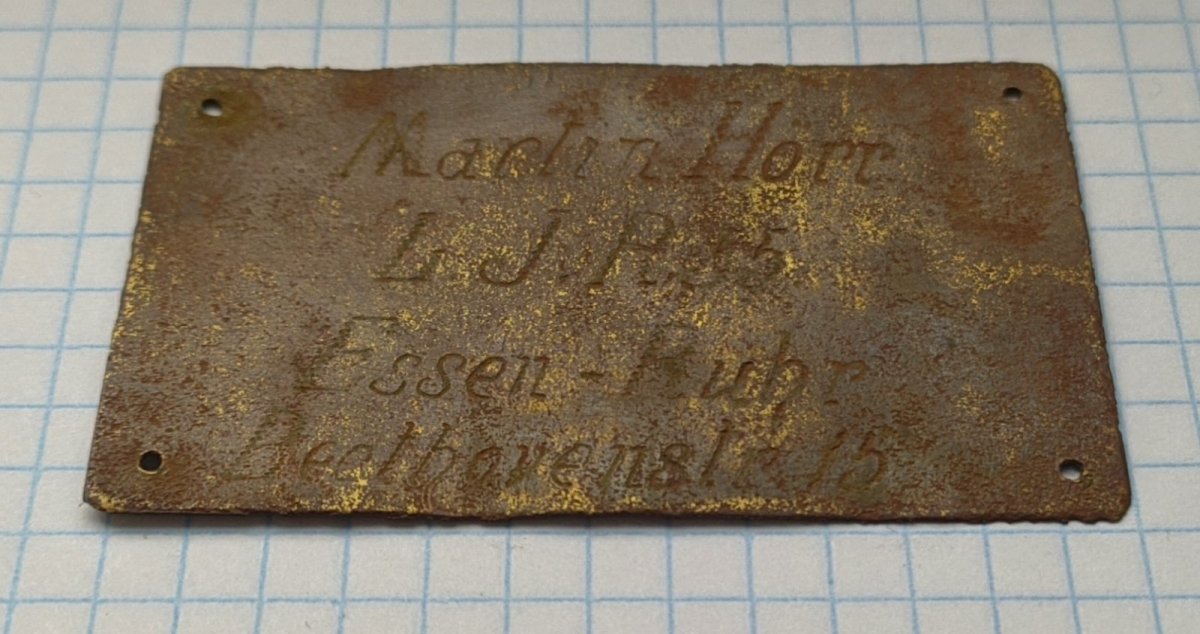 Martin Horr
I. J.R. 65
Essen-Ruhr
Beethovenstr. 15